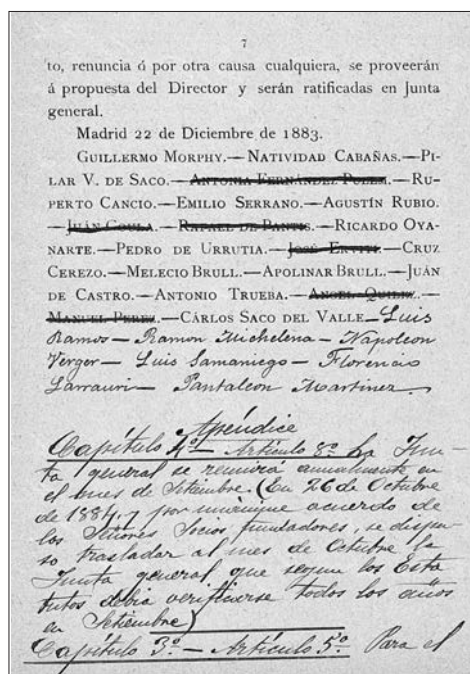 7
to, renuncia ó por otra causa cualquiera, se proveerán
á propuesta del Director y serán ratificadas en Junta
general.
Madrid 22 de Diciembre de 1883.
GUILLERMO MORPHY.—NATIVIDAD CABAÑAS.—PI-
LAR V. DE SACO.—ANTONIA FERNÁNDEZ.—RU-
PERTO CANCIO.—EMILIO SERRANO.—AGUSTÍN RUBIO.
—JUÁN GOULA.—RAFAEL DE PANTIS.—RICARDO OYA-
NARTE.—PEDRO DE URRUTIA.—JOSÉ ERVITI.—CRUZ
CEREZO.—MELECIO BRULL.—APOLINAR BRULL.—JUÁN
DE CASTRO.—ANTONIO TRUEBA.—ANGEL QUILEZ.—
MANUEL PEREZ.—CÁRLOS SACO DEL VALLE—Luis
Ramos—Ramon Michelena—Napoleon
Verger—Luis Samaniego—Florencio
Larrauri—Pantaleon Martinez
Apéndice
Capítulo 4º—Artículo 8º La Jun-
ta general se reunirá anualmente en
el mes de Setiembre. (En 26 de Octubre
de 1884, y por unanime acuerdo de
los Señores Socios fundadores, se dispu-
so trasladar al mes de Octubre la
Junta general, que segun los Esta
tutos debia verificarse todos los años
en Setiembre)
Capítulo 3º—Artículo 5º Para el